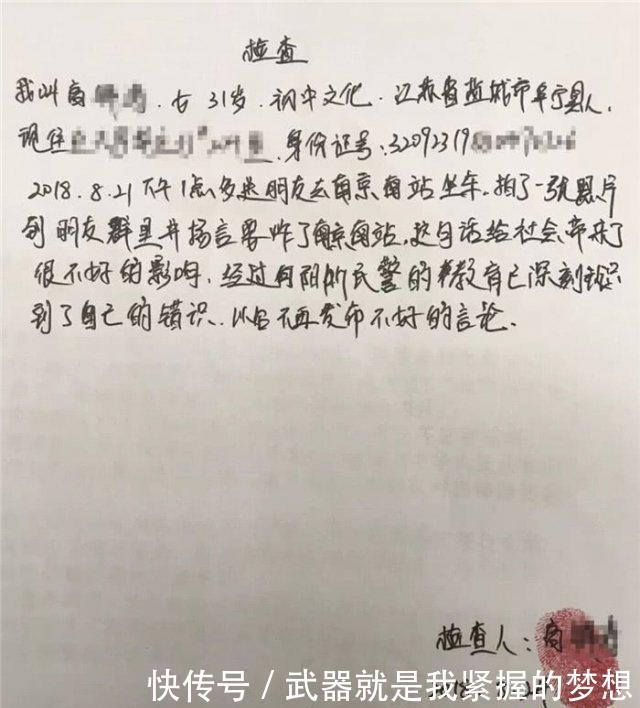 检查
我叫高 女 31岁 初中文化 江苏省盐城市阜宁县人,
现住 身份证号:32092319
2018.8.21下午1点多送朋友去南京南站坐车,拍了一张照片
到朋友群里并扬言要炸了南京南站,这句话给社会带来了
很不好的影响,经过向阳所民警的教育已深刻认识
到了自己的错误,以后不再发布不好的言论。
检查人:高
快传号/武器就是我紧握的梦想